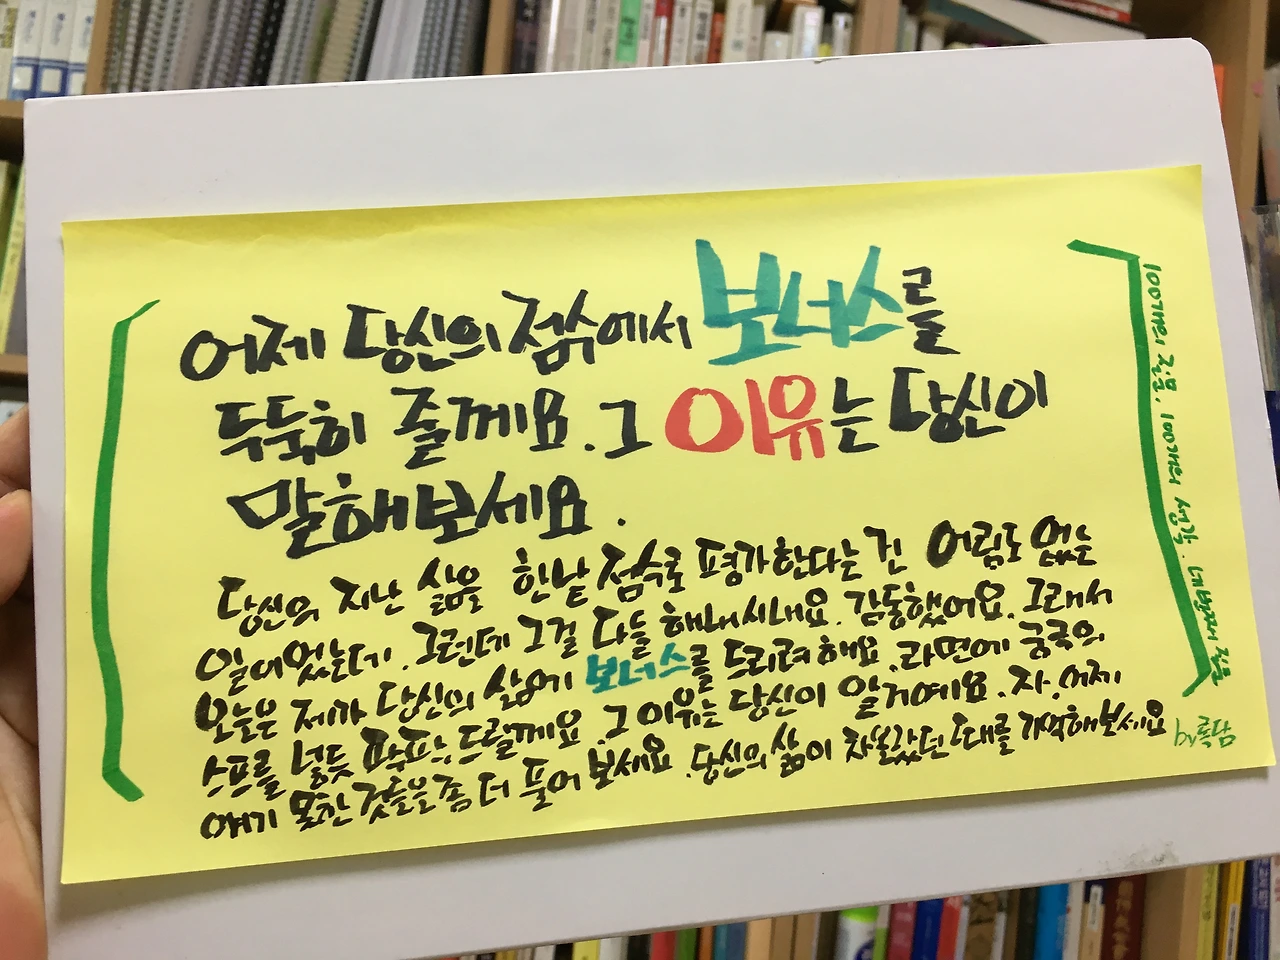 어제 당신의 점수에서 보너스를
두둑히 줄께요. 그 이유는 당신이
말해보세요.
당신의 지난 삶을 한낱 점수로 평가한다는 건 어림도 없는
일이었는데. 그런데 그걸 다들 해내시네요. 감동했어요. 그래서
오늘은 제가 당신의 삶에 보너스를 드리려 해요. 라면에 궁극의
스프를 넣듯 팍팍 드릴께요 그 이유는 당신이 알거예요. 자, 어제
얘기 못한 것들은 좀 더 풀어 보세요. 당신의 삶이 차올랐던 그때를 기억해보세요
by록담
100개의 질문. 100개의 생각. 네번째 질문